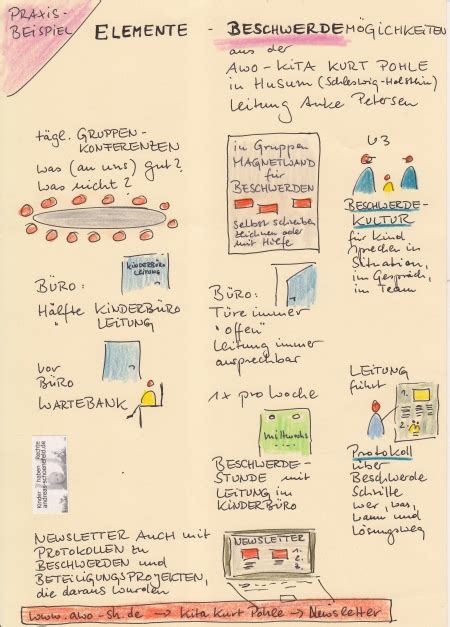 PRAXIS-
BEISPIEL
ELEMENTE - BESCHWERDEMÖGLICHKEITEN
aus der
AWO-KITA KURT POHLE
in Husum (Schleswig-Holstein)
Leitung Anke Petersen
tägl. GRUPPEN-
KONFERENZEN
was (an uns) gut?
was nicht?
in Gruppen
MAGNETWAND
für
BESCHWERDEN
selbst schreiben
zeichnen oder
mit Hilfe
U3
BESCHWERDE-
KULTUR
für Kind
sprechen in
Situation,
im Gespräch,
im Team
KINDERBÜRO
LEITUNG
BÜRO:
Hälfte KINDERBÜRO
" LEITUNG
BÜRO:
Türe immer
"offen"
Leitung immer
ansprechbar
vor
BÜRO
WARTEBANK
1x pro Woche
mittwochs
BESCHWERDE-
STUNDE mit
LEITUNG im
KINDERBÜRO
LEITUNG
führt
1.
2.
Protokoll
über
Beschwerde
Schritte
wer, was,
wann und
Lösungsweg
Kinder haben Rechte
andreas-schoenefeld.de
NEWSLETTER AUCH mit
PROTOKOLLEN zu
BESCHWERDEN und
BETEILIGUNGSPROJEKTEN,
die daraus wurden
NEWSLETTER
1.
2.
www.awo-sh.de → Kita Kurt Pohle → Newsletter